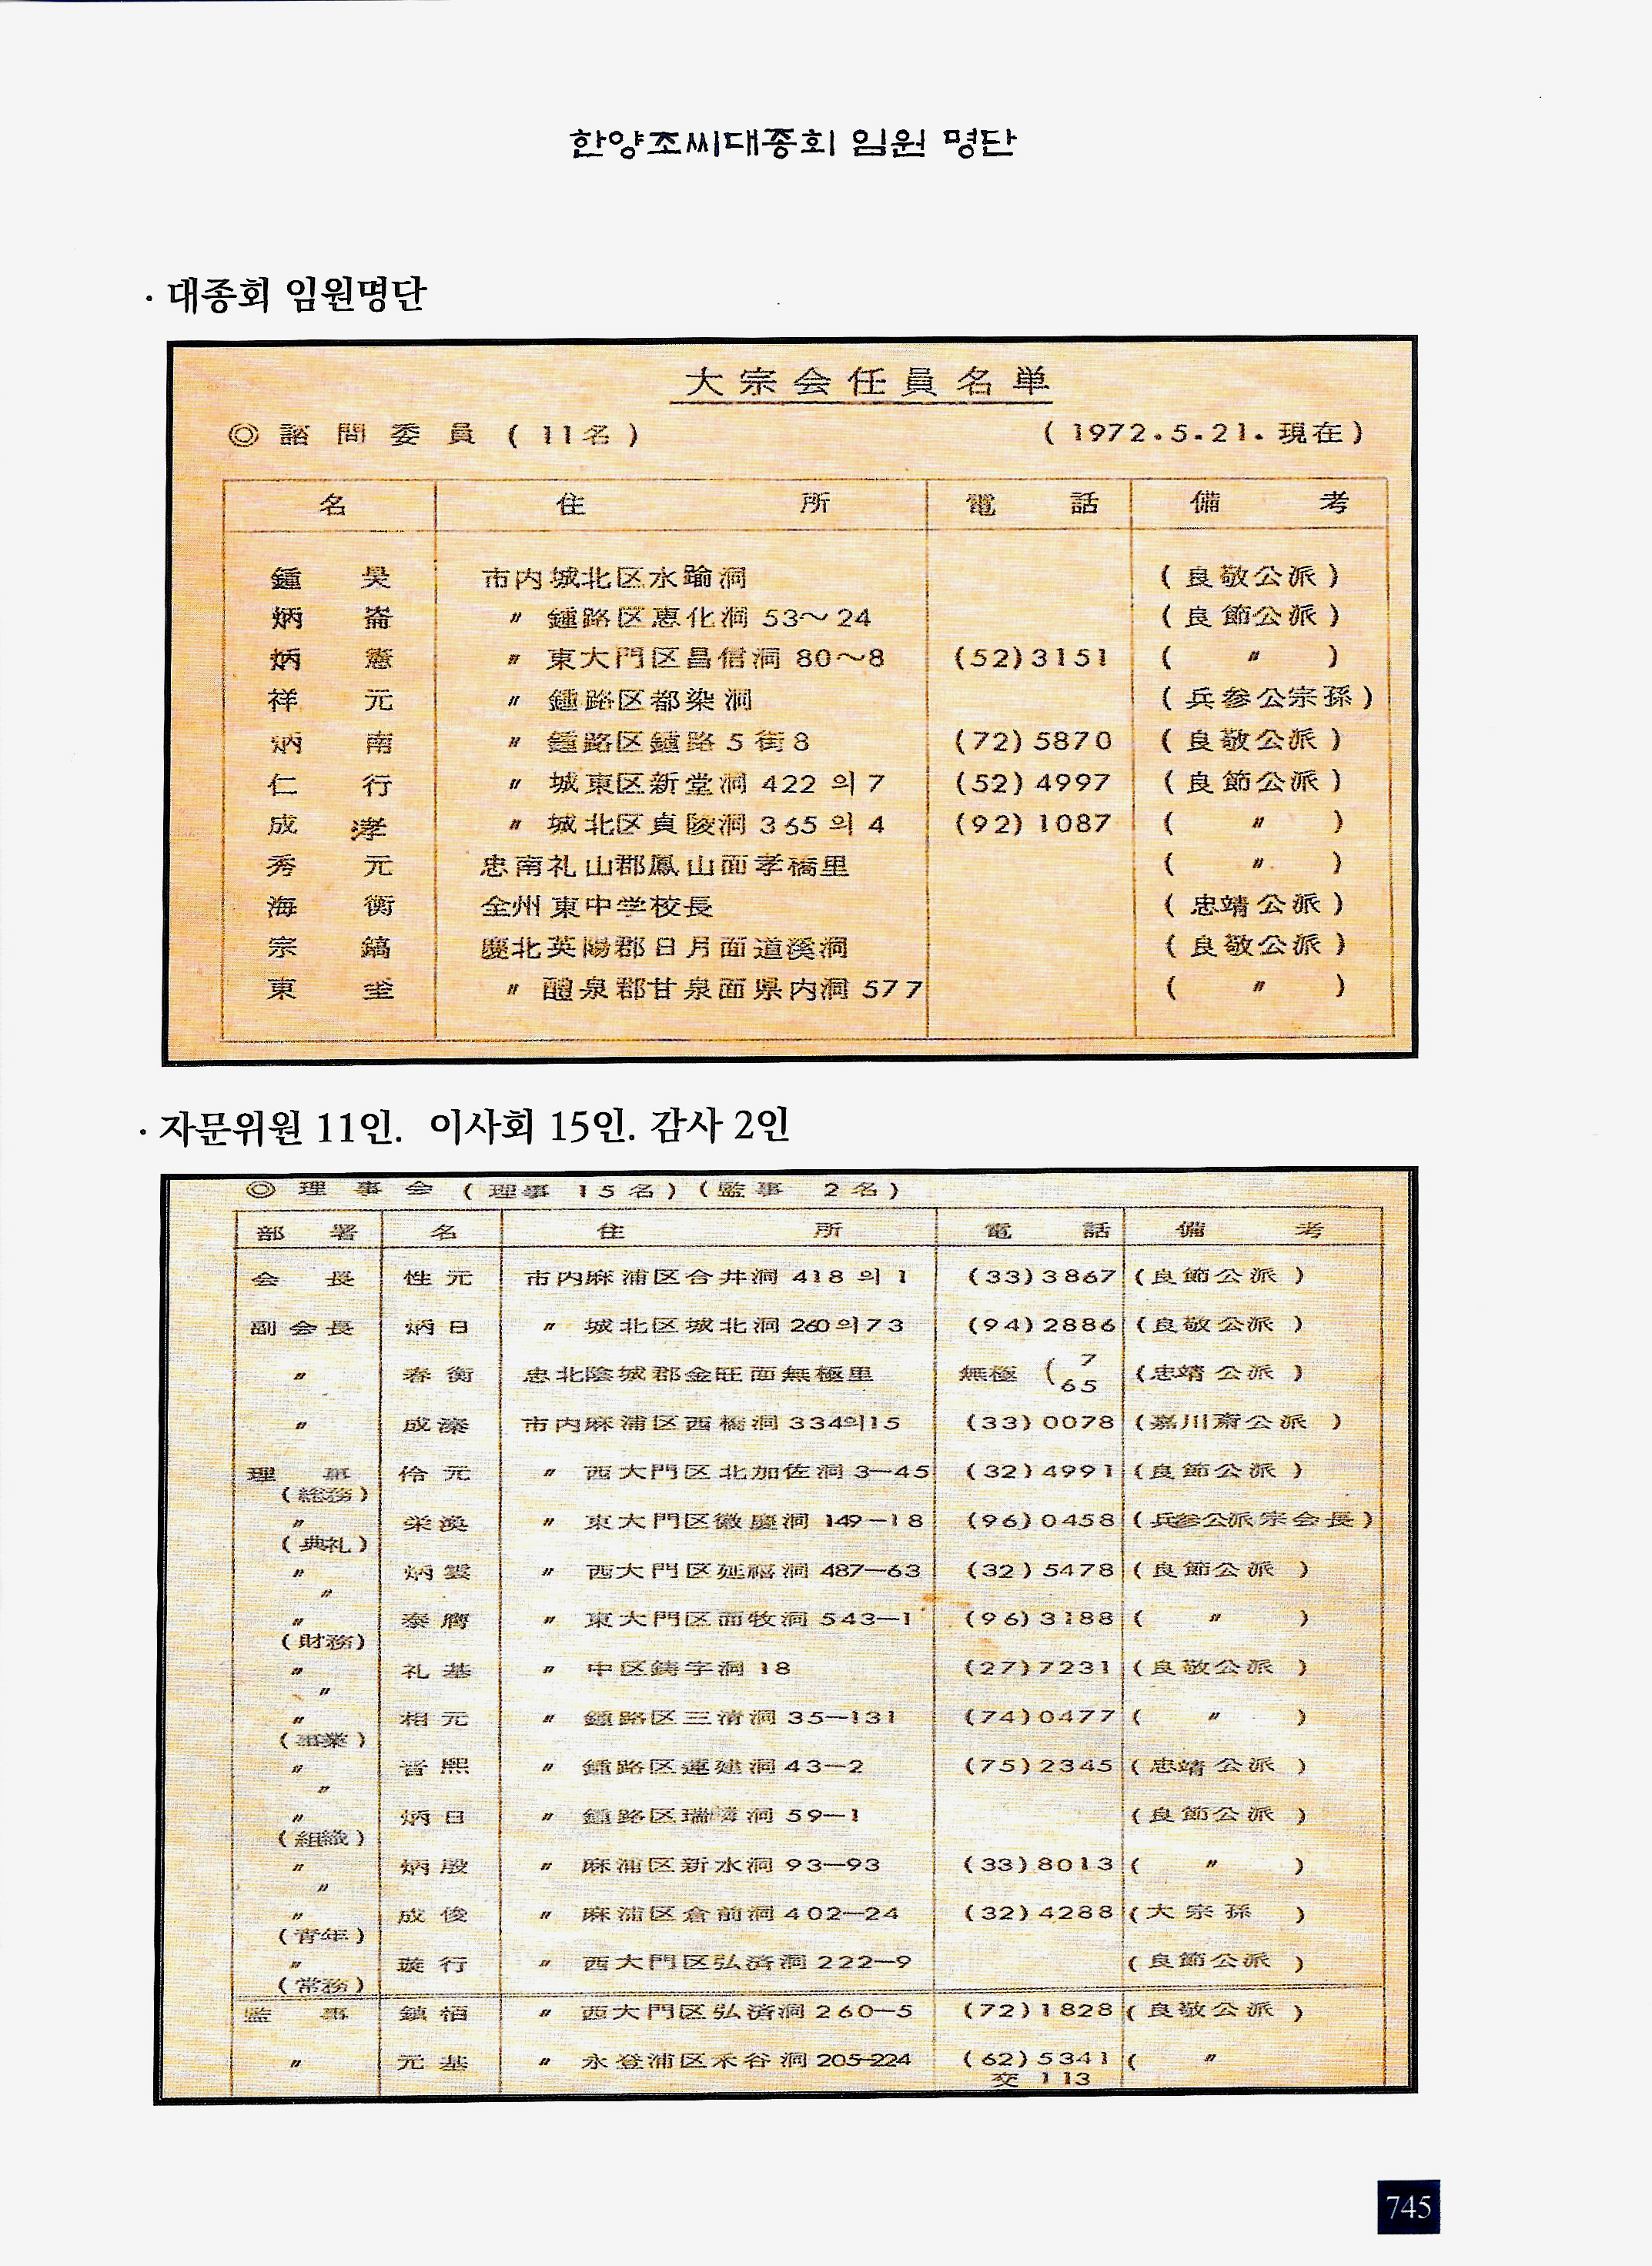 한양조씨대종회 임원 명단
· 대종회 임원명단
大宗会任員名単
◎ 諮問委員 ( 11名 ) ( 1972.5.21. 現在 )
名 住所 電話 備考
鍾昊 市内城北区水踰洞 ( 良敬公派 )
炳崙 〃 鍾路区恵化洞 53〜24 ( 良節公派 )
炳憲 〃 東大門区昌信洞 80〜8 (52)3151 ( 〃 )
祥元 〃 鍾路区都染洞 ( 兵参公宗孫 )
炳南 〃 鍾路区鍾路 5 街 8 (72)5870 ( 良敬公派 )
仁行 〃 城東区新堂洞 422 의 7 (52)4997 ( 良節公派 )
成 〃 城北区貞陵洞 365 의 4 (92)1087 ( 〃 )
秀元 忠南礼山郡鳳山面孝橋里 ( 〃 )
海衡 全州東中学校長 ( 忠靖公派 )
宗鎬 慶北英陽郡日月面道溪洞 ( 良敬公派 )
東 〃 醴泉郡甘泉面県内洞 577 ( 〃 )
· 자문위원 11인. 이사회 15인. 감사 2인
◎ 理事会 ( 理事 15名 ) ( 監事 2名 )
部署 名 住所 電話 備考
会長 性元 市内麻浦区合井洞 418 의 1 (33)3867 (良節公派 )
副会長 炳日 〃 城北区城北洞 260의73 (94)2886 (良敬公派 )
〃 春衡 忠北陰城郡金旺面無極里 無極 ( 7 65 (忠靖公派 )
〃 成濠 市内麻浦区西橋洞 334의15 (33)0078 (嘉川斎公派 )
理事 伶元 〃 西大門区北加佐洞 3—45 (32)4991 (良節公派 )
(総務)
〃 栄渙 〃 東大門区徽慶洞 149—18 (96)0458 (兵参公派宗会長)
(典礼)
〃 炳雲 〃 西大門区延禧洞 487—63 (32)5478 (良節公派 )
〃
〃 泰 〃 東大門区面牧洞 543—1 (96)3188 ( 〃 )
(財務)
〃 礼基 〃 中区鋳字洞 18 (27)7231 (良敬公派 )
〃
〃 相元 〃 鍾路区三清洞 35—131 (74)0477 ( 〃 )
(事業)
〃 晋熙 〃 鍾路区蓮建洞 43—2 (75)2345 (忠靖公派 )
〃
〃 炳日 〃 鍾路区瑞麟洞 59—1 (良節公派 )
(組織)
〃 炳殷 〃 麻浦区新水洞 93—93 (33)8013 ( 〃 )
〃
〃 成俊 〃 麻浦区倉前洞 402—24 (32)4288 (大宗孫 )
(青年)
〃 璇行 〃 西大門区弘済洞 222—9 (良節公派 )
(常務)
監事 鎮栢 〃 西大門区弘済洞 260—5 (72)1828 (良敬公派 )
〃 元基 〃 永登浦区禾谷洞 205-224 (62)5341 ( 〃
交 113
745